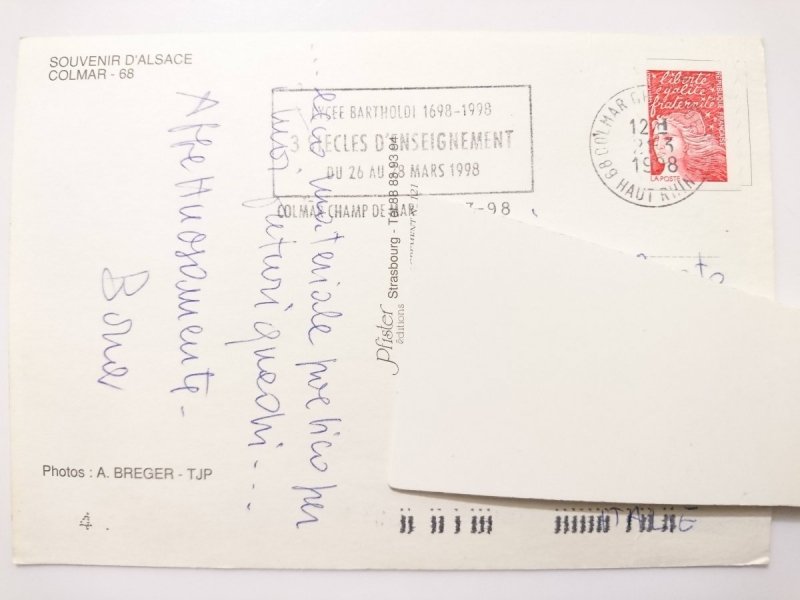 SOUVENIR D'ALSACE
COLMAR - 68
LYCEE BARTHOLDI 1698-1998
3 SIECLES D'ENSEIGNEMENT
DU 26 AU 28 MARS 1998
COLMAR CHAMP DE MAR
3-98
68 COLMAR
HAUT RHIN
12H
21-3
1998
liberté
égalité
fraternité
LA POSTE
... materiale poetico per
i tuoi futuri quadri...
Affettuosamente -
Bona
Pfister
éditions
Strasbourg - Tél. 88 83 93 94
Photos : A. BREGER - TJP
ITALIE